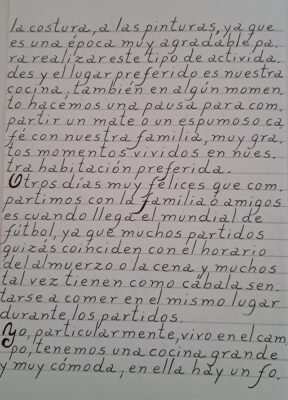 la costura, a las pinturas, ya que
es una época muy agradable pa.
ra realizar este tipo de activida.
des y el lugar preferido es nuestra
cocina, también en algún momen.
to hacemos una pausa para com.
partir un mate o un espumoso ca
fé con nuestra familia, muy gra.
tos momentos vividos en nues.
tra habitación preferida.
Otros días muy felices que com.
partimos con la familia o amigos
es cuando llega el mundial de
fútbol, ya que muchos partidos
quizás coinciden con el horario
del almuerzo o la cena y muchos
tal vez tienen como cábala sen.
tarse a comer en el mismo lugar
durante los partidos.
Yo, particularmente, vivo en el cam
po, tenemos una cocina grande
y muy cómoda; en ella hay un fo.